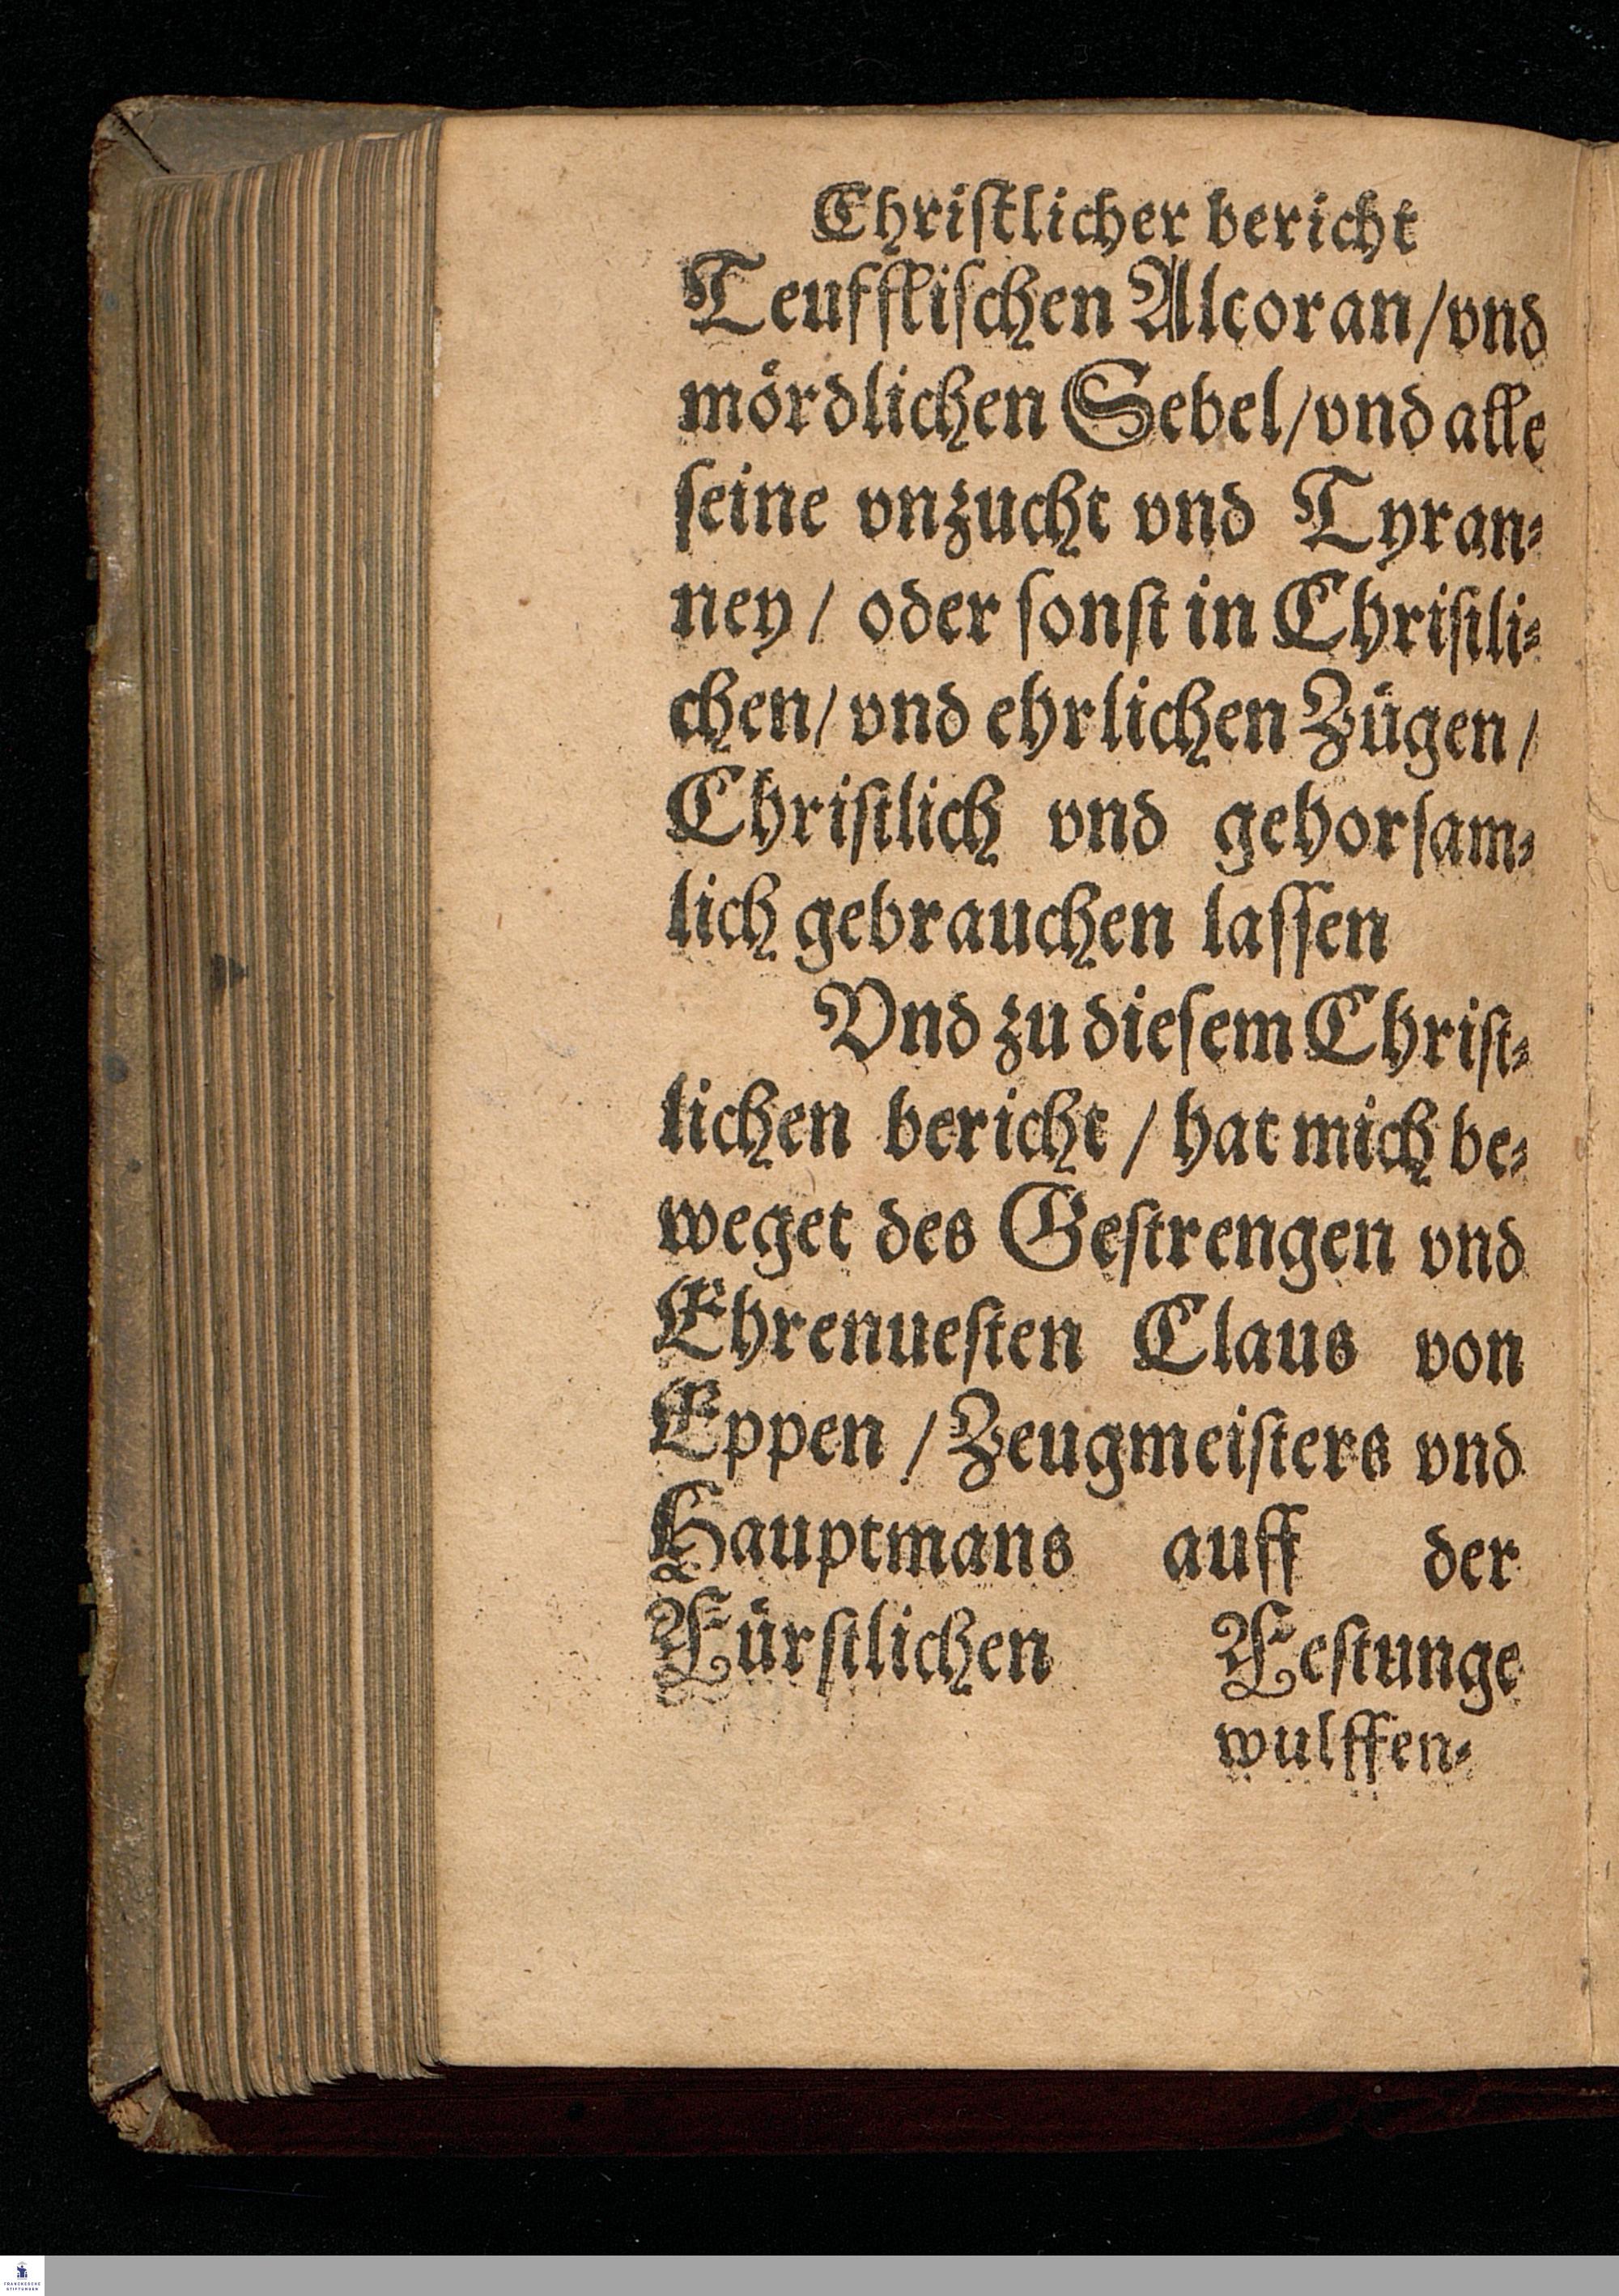 Chriſtlicher bericht
Teufflischen Alcoran/vnd
mördlichen Sebel/vnd alle
ſeine vnzucht vnd Tyran⸗
ney/ oder ſonſt in Chriſtli⸗
chen/ vnd ehrlichen Zügen/
Chriſtlich vnd gehorſam⸗
lich gebrauchen laſſen
Vnd zu dieſem Chriſt⸗
lichen bericht / hat mich be⸗
weget des Geſtrengen vnd
Ehrenueſten Claus von
Eppen / Zeugmeiſters vnd
Hauptmans auff der
Fürſtlichen Feſtunge
wulffen⸗
FRANCKESCHE
STIFTUNGEN